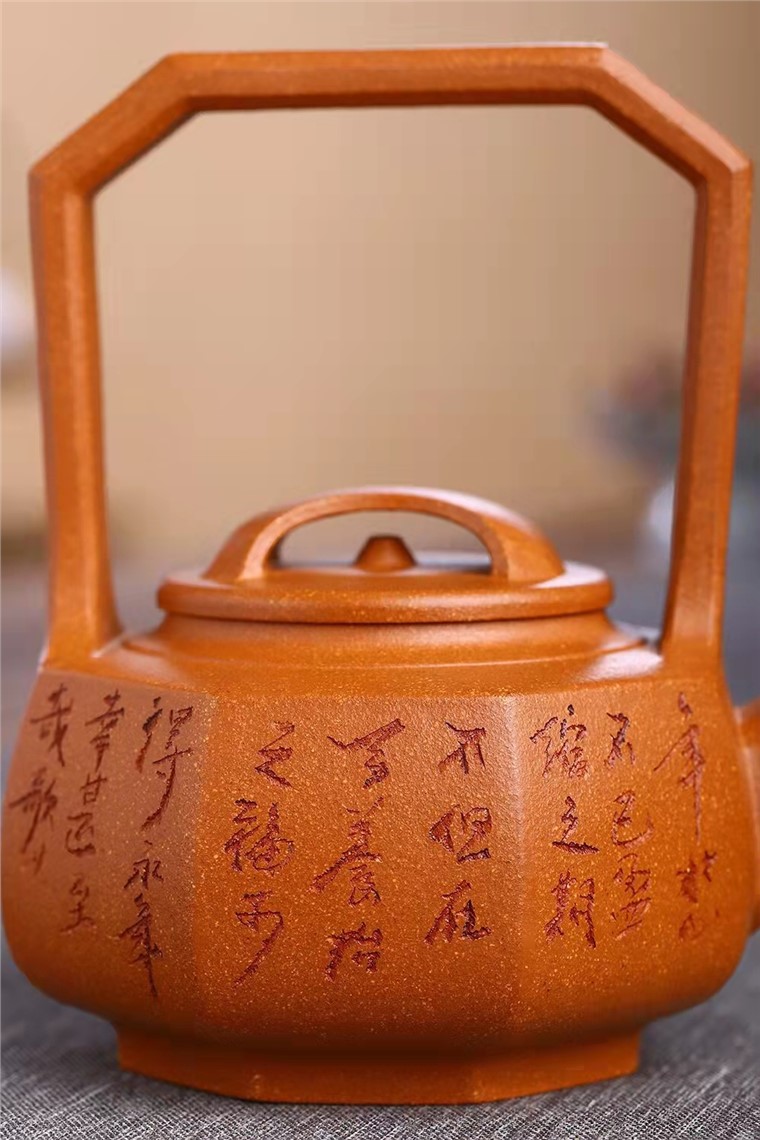 年壯心
不已盈
縮之期
不但在
天養怡
之福可
得永年
幸甚至
哉歌以